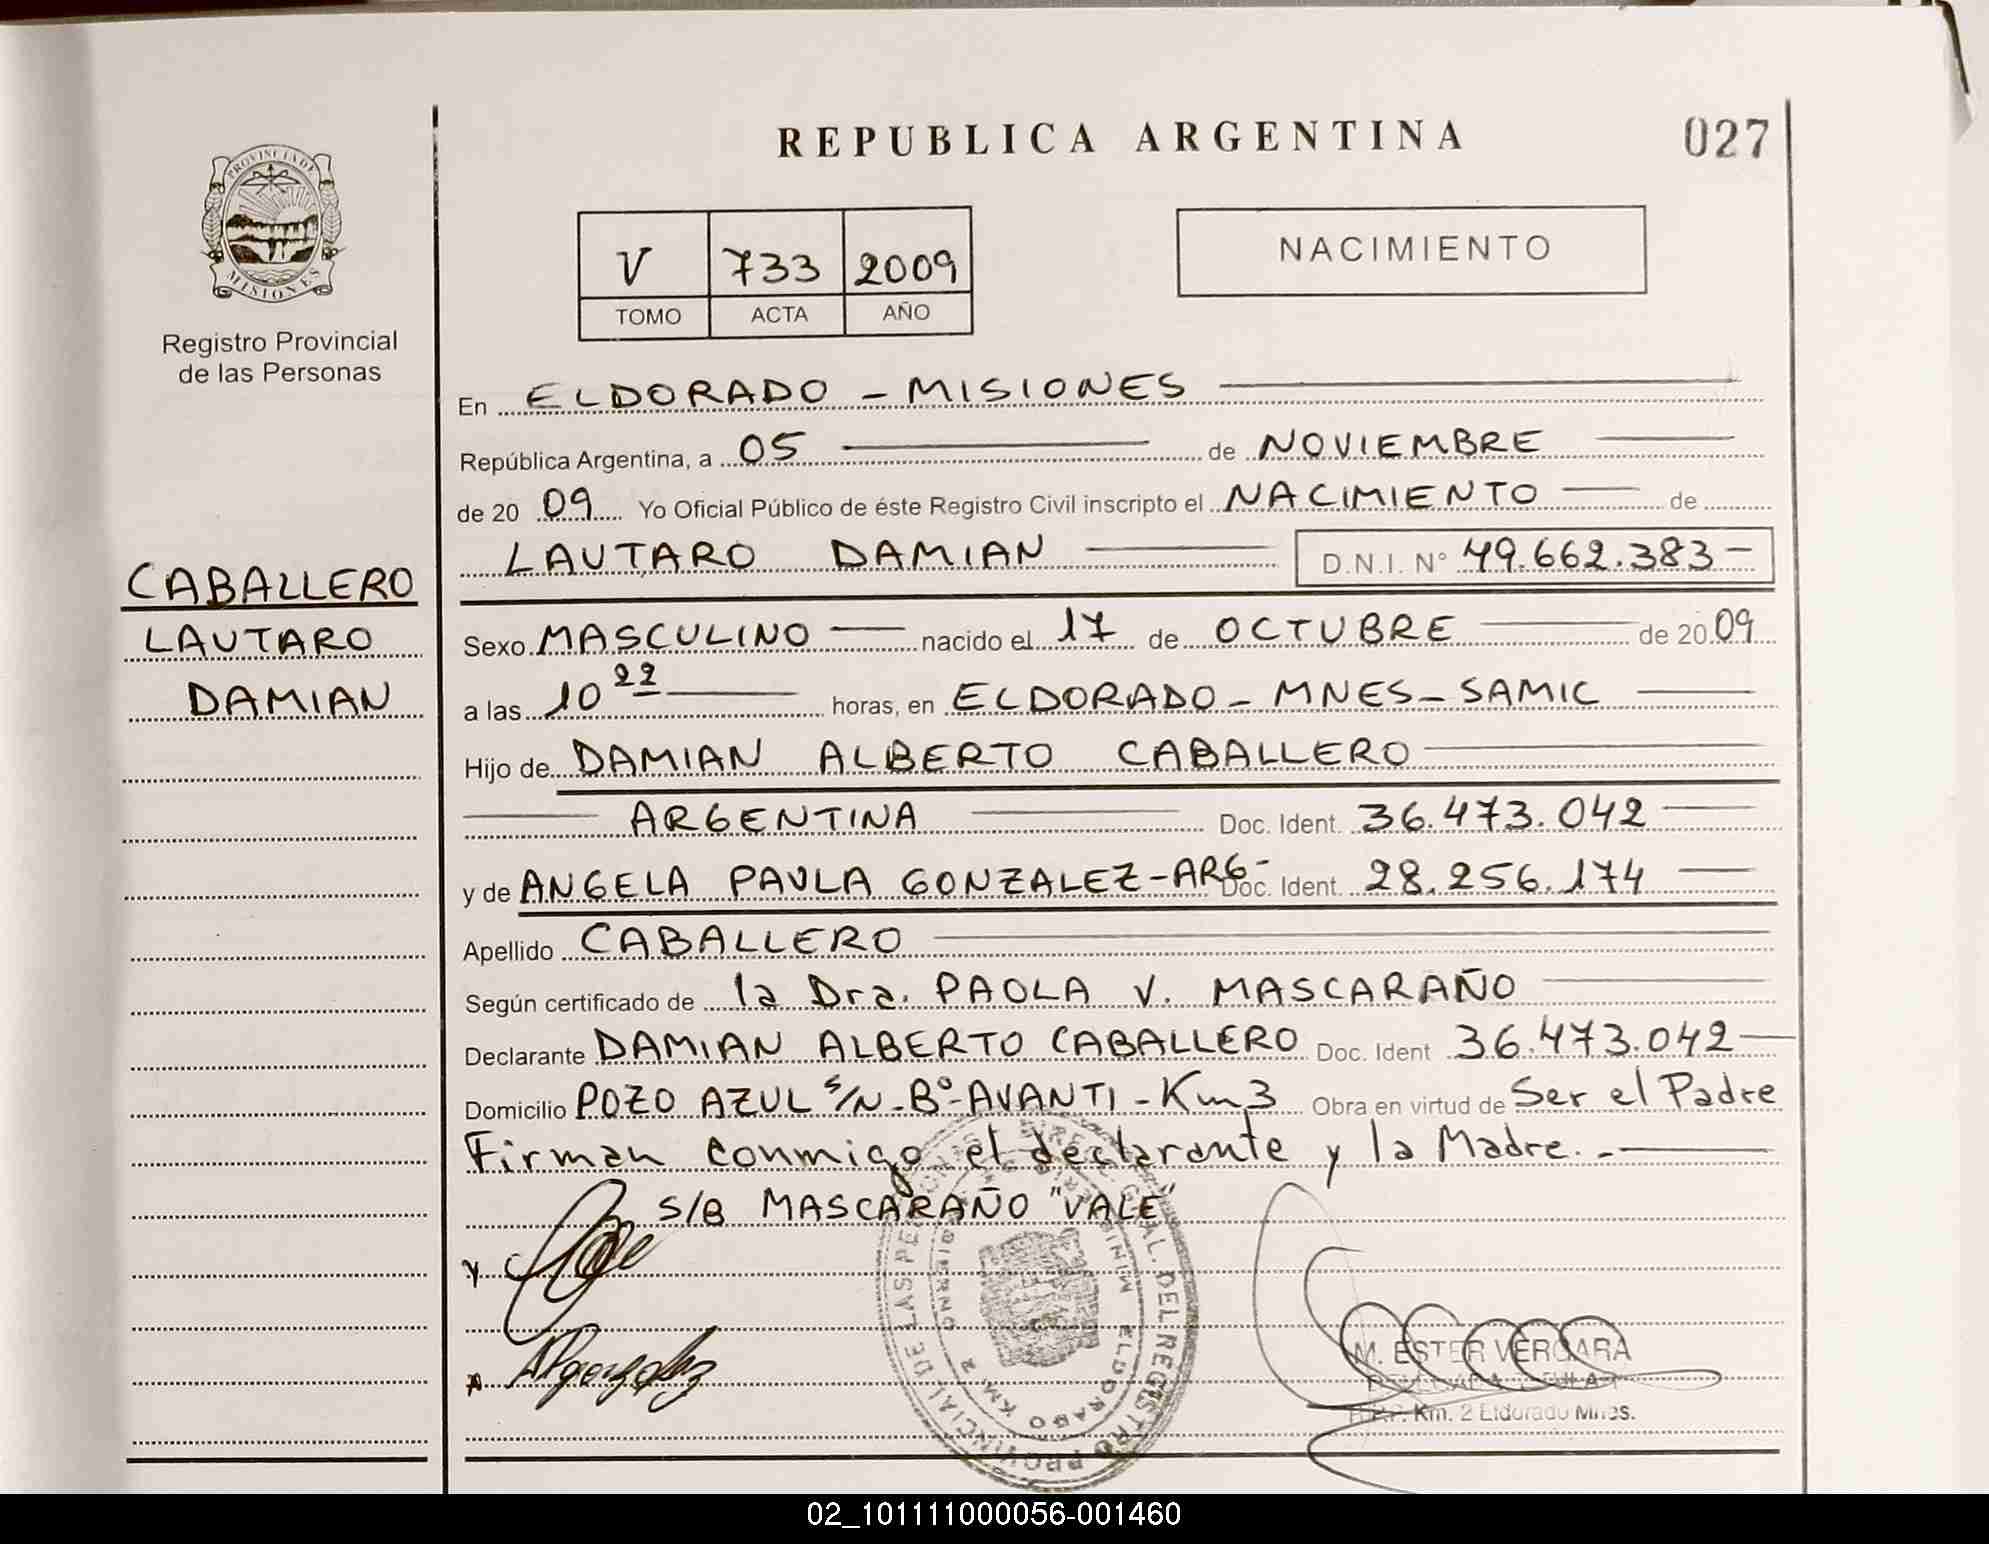 REPUBLICA ARGENTINA
027
PROVINCIA DE
MISIONES
Registro Provincial
de las Personas
V 733 2009
TOMO ACTA AÑO
NACIMIENTO
CABALLERO
LAUTARO
DAMIAN
En ELDORADO - MISIONES
República Argentina, a 05 de NOVIEMBRE
de 20 09 Yo Oficial Público de éste Registro Civil inscripto el NACIMIENTO de
LAUTARO DAMIAN D.N.I. Nº 49.662.383-
Sexo MASCULINO nacido el 17 de OCTUBRE de 20 09
a las 10 22 horas, en ELDORADO - MNES - SAMIC
Hijo de DAMIAN ALBERTO CABALLERO
ARGENTINA Doc. Ident. 36.473.042
y de ANGELA PAULA GONZALEZ - ARG- Doc. Ident. 28.256.174
Apellido CABALLERO
Según certificado de la Dra. PAOLA V. MASCARAÑO
Declarante DAMIAN ALBERTO CABALLERO Doc. Ident 36.473.042
Domicilio POZO AZUL S/N - Bº - AVANTI - Km 3 Obra en virtud de Ser el Padre
Firman conmigo el declarante y la Madre. -
S/B MASCARAÑO "VALE"
DEL REGISTRO PROVINCIAL DE LAS
ELDORADO KM. 2
M. ESTER VERGARA
Km. 2 Eldorado Mnes.
02_101111000056-001460